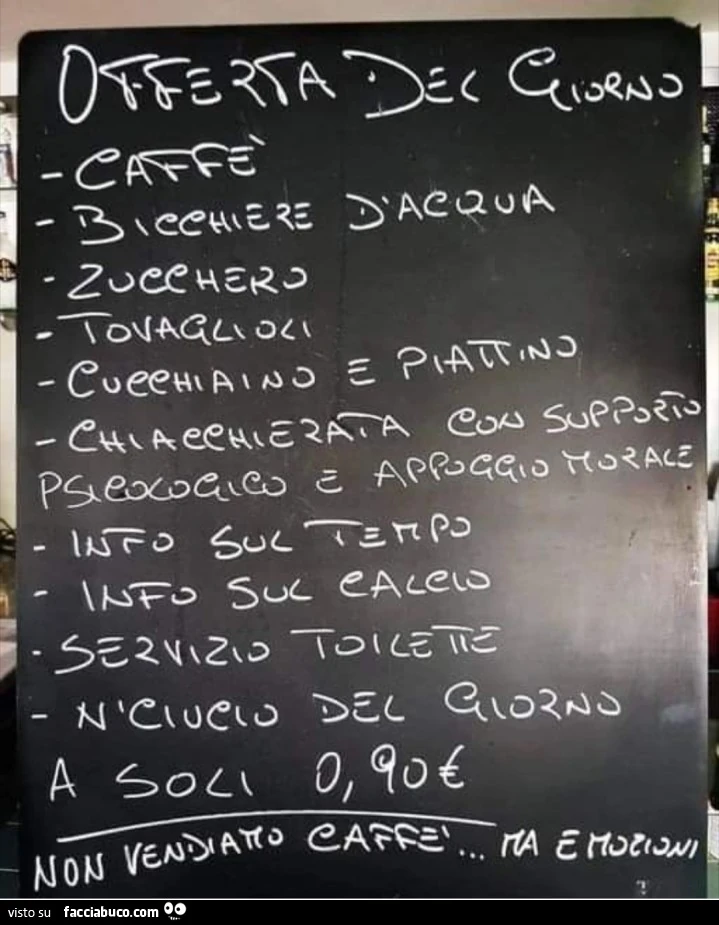 OFFERTA DEL GIORNO
- CAFFÈ
- BICCHIERE D'ACQUA
- ZUCCHERO
- TOVAGLIOLI
- CUCCHIAINO E PIATTINO
- CHIACCHIERATA CON SUPPORTO
PSICOLOGICO E APPOGGIO MORALE
- INFO SUL TEMPO
- INFO SUL CALCIO
- SERVIZIO TOILETTE
- N'CIUCIO DEL GIORNO
A SOLI 0,90€
NON VENDIAMO CAFFE'... MA EMOZIONI
visto su facciabuco.com